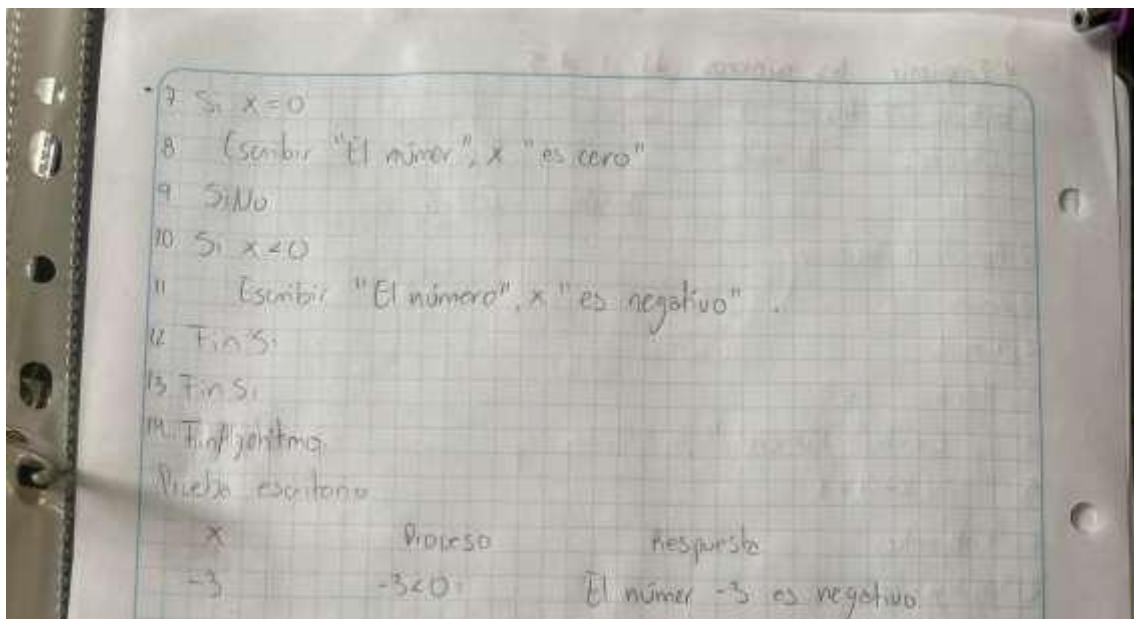 7. Si x=0
8 Escribir "El númer", x "es cero"
9 SiNo
10. Si x<0
11 Escribir "El número", x "es negativo".
12 FinSi
13 FinSi
14. FinAlgoritmo
Prueba escritorio
x Proceso Respuesta
-3 -3<0 El númer -3 es negativo